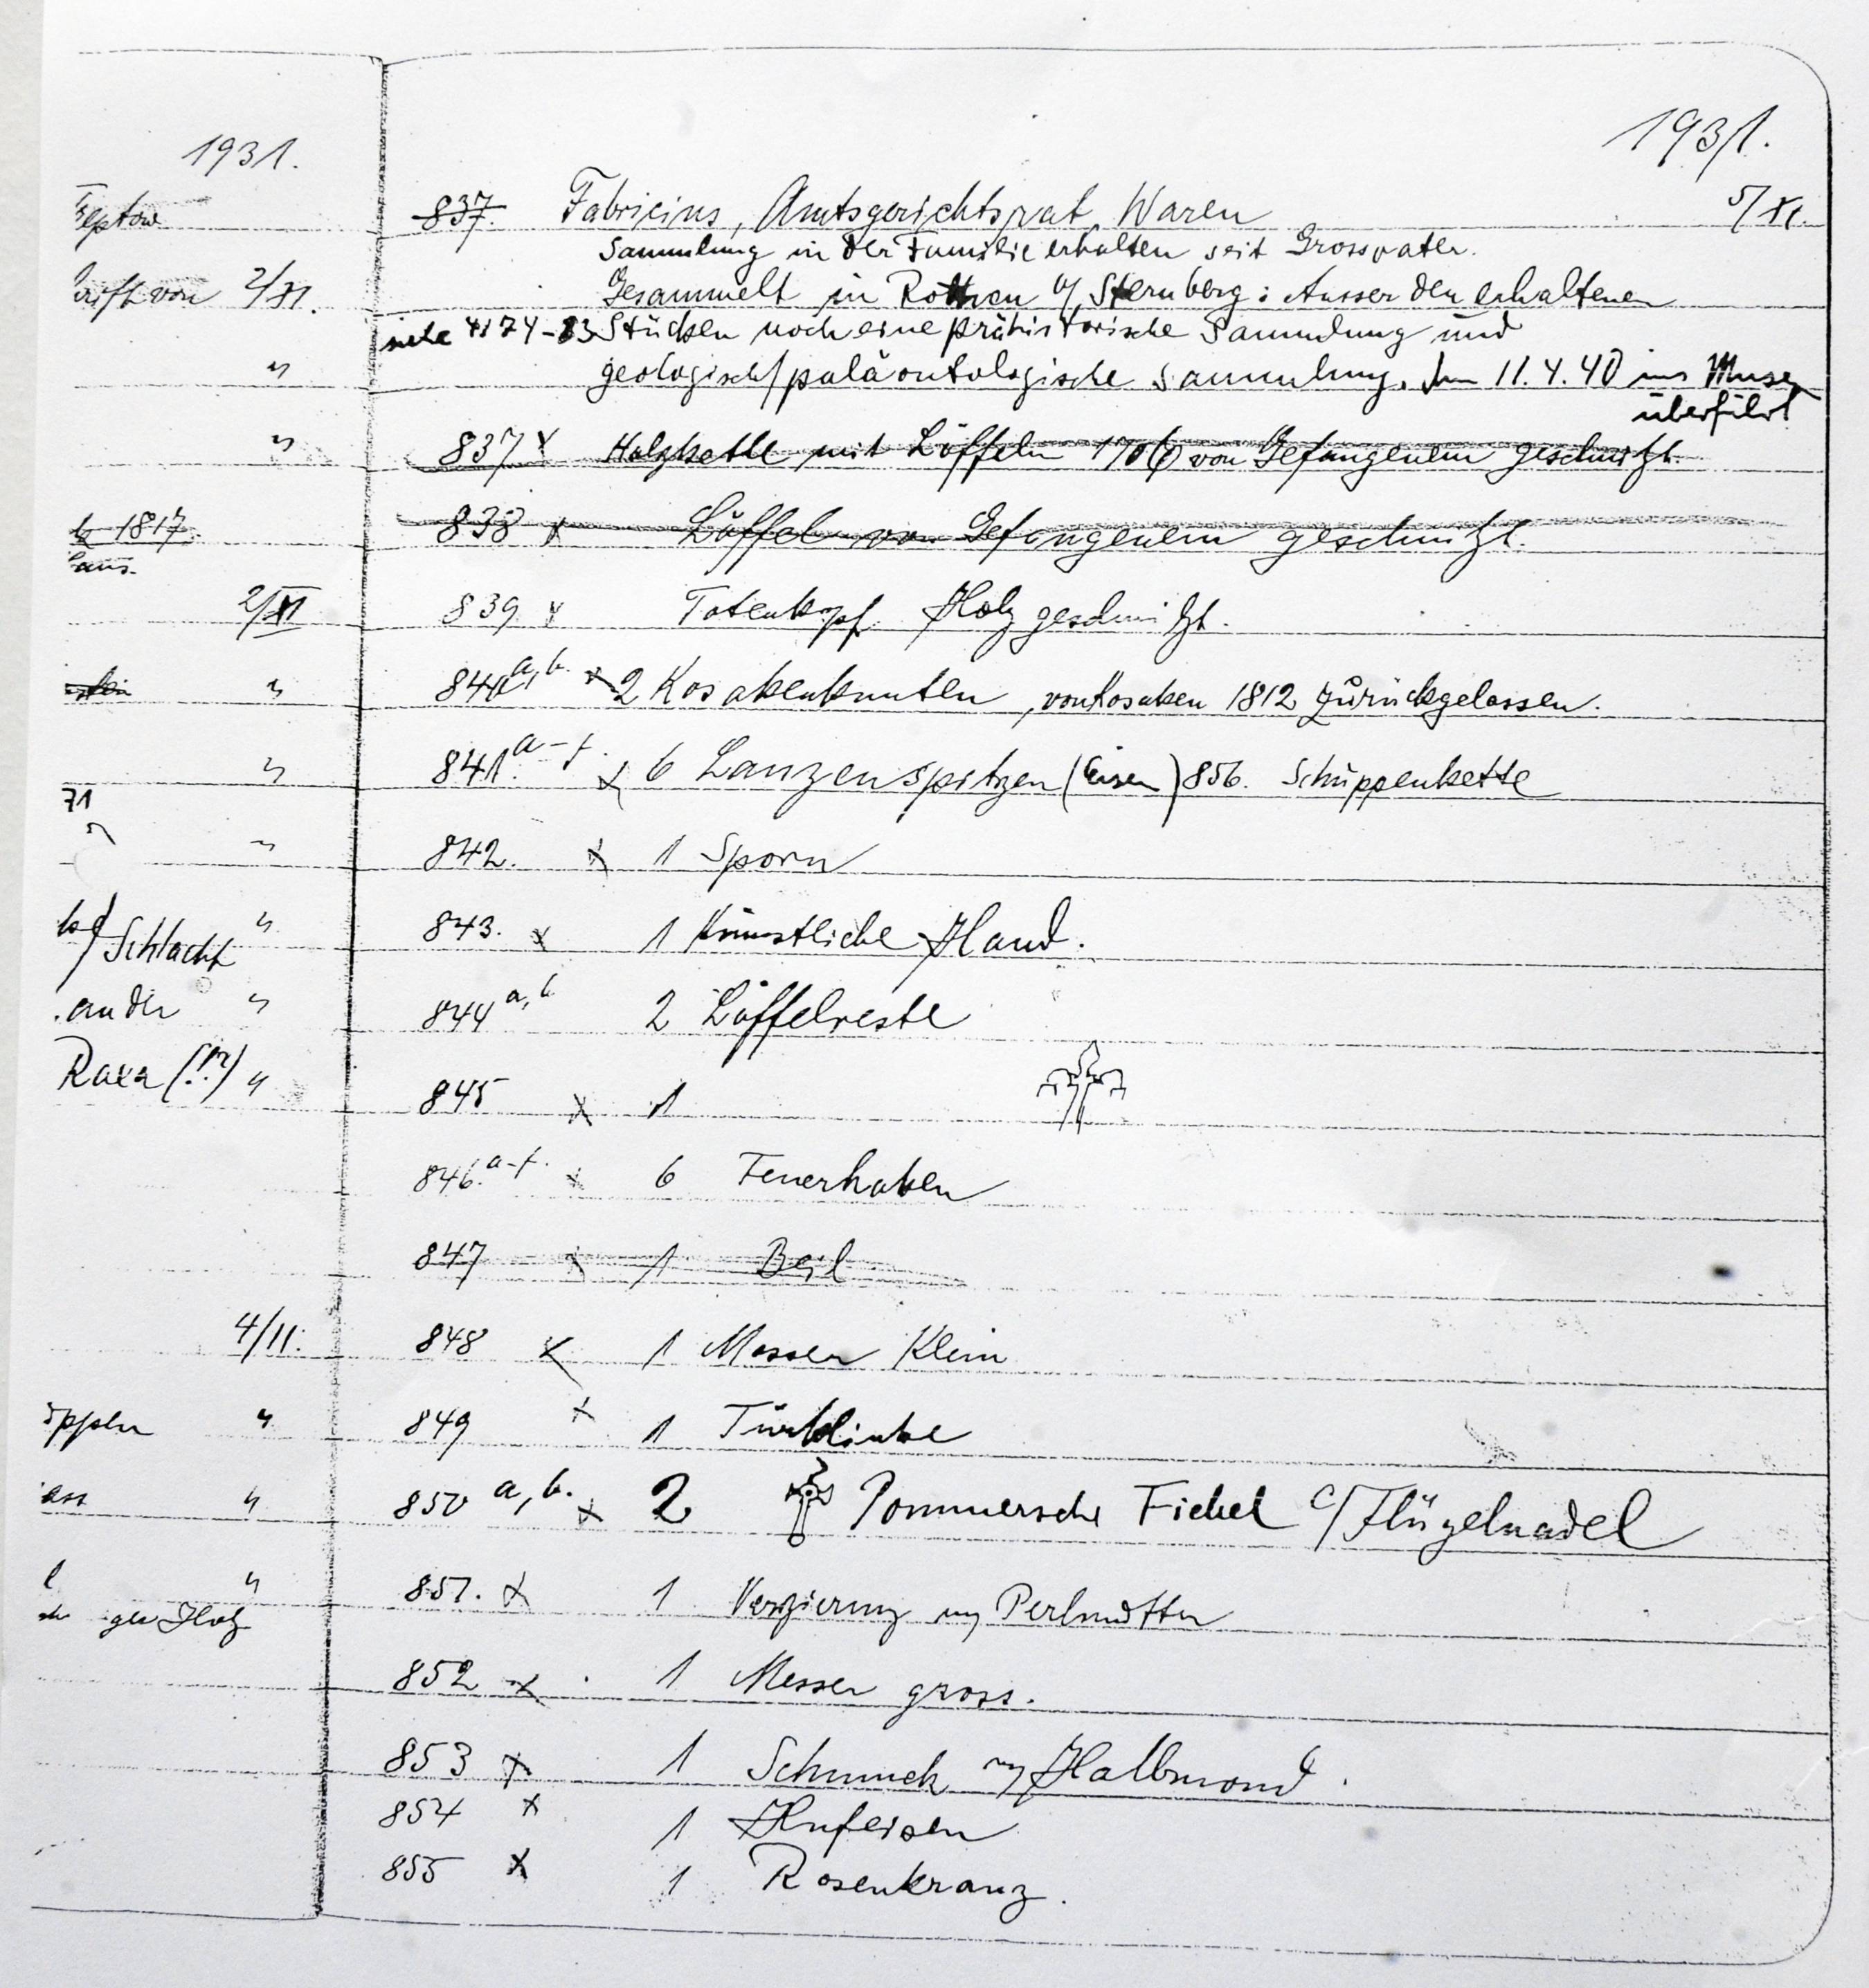 1931.
Treptow
2/XI.
"
"
1817.
2/XI
"
"
71
" "
"
Schlacht
an der "
Raxa (!?) "
4/11.
"
"
"
Holz
1931.
837. Fabricius, Amtsgerichtsrat, Waren 5/XI.
Sammlung in der Familie erhalten seit Grossvater.
Gesammelt in Rothen b/ Sternberg: Ausser den erhaltenen
siehe 4174-83 Stücken noch eine prähistorische Sammlung und
geologisch/paläontologische Sammlung. Im 11.4.40 ins Museum
überführt
837 x Holzkette mit Löffeln 1706 von Gefangenem geschnitzt.
838 x Löffel von Gefangenem geschnitzt.
839 x Totenkopf Holz geschnitzt.
840 a, b. x 2 Kosakenknuten, von Kosaken 1812 zurückgelassen.
841. a-f. x 6 Lanzenspitzen (Eisen) 856. Schuppenkette
842. x 1 Sporn
843. x 1 Künstliche Hand.
844 a, b 2 Löffelreste
845 x 1
846. a-f. x 6 Feuerhaken
847 x 1 Beil
848 x 1 Messer Klein
849 x 1 Türklinke
850 a, b. x 2 Pommersche Fiebel c/ Flügelnadel
851. x 1 Verzierung m/ Perlmutter
852 x 1 Messer gross.
853 x 1 Schmuck m/ Halbmond.
854 x 1 Hufeisen
855 x 1 Rosenkranz.